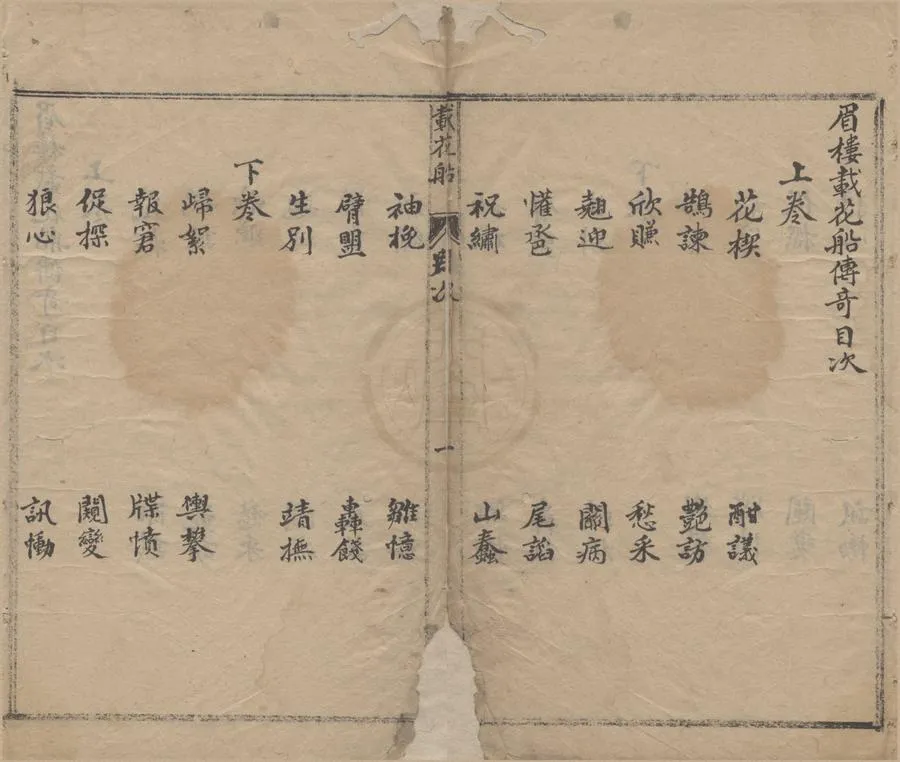 眉樓載花船傳奇目次
上卷
花楔 酣議
鵲諫 艷訪
欣賺 愁釆
翹迎 闈病
懽卺 尾謟
祝繡 山蠢
載花船 目次 一
袖挽 雛憶
臂盟 轟餞
生別 靖撫
下卷
歸絮 輿攀
報窘 牒憤
促探 闖變
狼心 訊慟